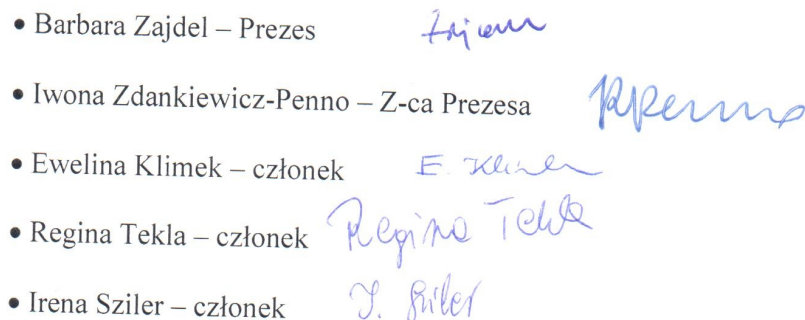 • Barbara Zajdel – Prezes
• Iwona Zdankiewicz-Penno – Z-ca Prezesa
• Ewelina Klimek – członek E. Klimek
• Regina Tekla – członek Regina Tekla
• Irena Sziler – członek I. Sziler